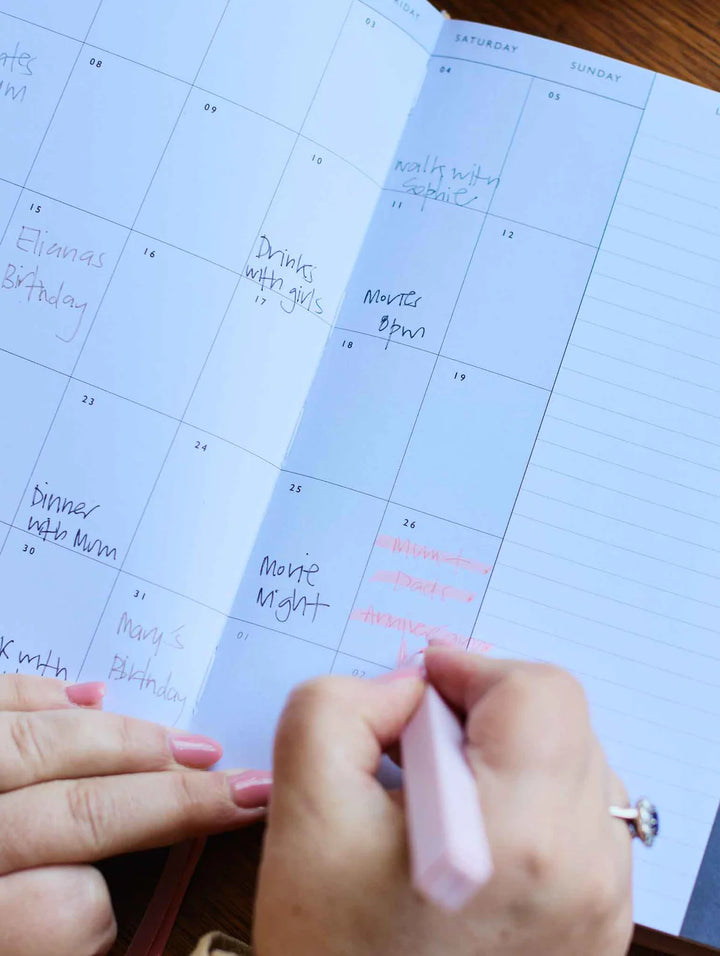 SATURDAY
SUNDAY
03
04
05
08
09
10
11
12
walk with
Sophie
Drinks
with girls
Movies
8pm
15
Elianas
Birthday
16
17
18
19
23
24
25
26
Dinner
with Mum
Movie
Night
Mum +
Dads
Anniversary
30
31
01
02
Mary's
Birthday
with